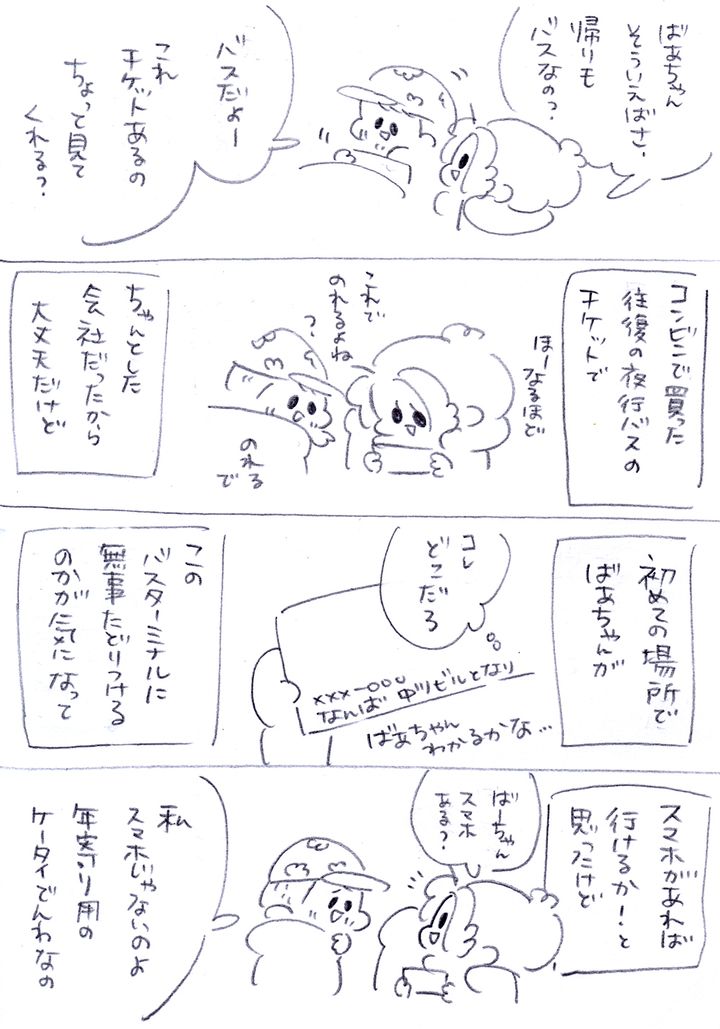 ばあちゃん
そういえばさ、
帰りも
バスなの?
バスだよー
これ
チケットあるの
ちょって見て
くれる?
コンビニで買った
往復の夜行バスの
チケットで
ほーなるほど
これで
のれるよね
?
のれる
で
ちゃんとした
会社だったから
大丈夫だけど
初めての場所で
ばあちゃんが
コレ
どこだろ
xxx-000
なんば 中ツビルとなり
ばあちゃん
わかるかな…
この
バスターミナルに
無事たどりつける
のかが気になって
スマホがあれば
行けるか!と
思ったけど
ばーちゃん
スマホ
ある?
私
スマホじゃないのよ
年寄り用の
ケータイでんわなの